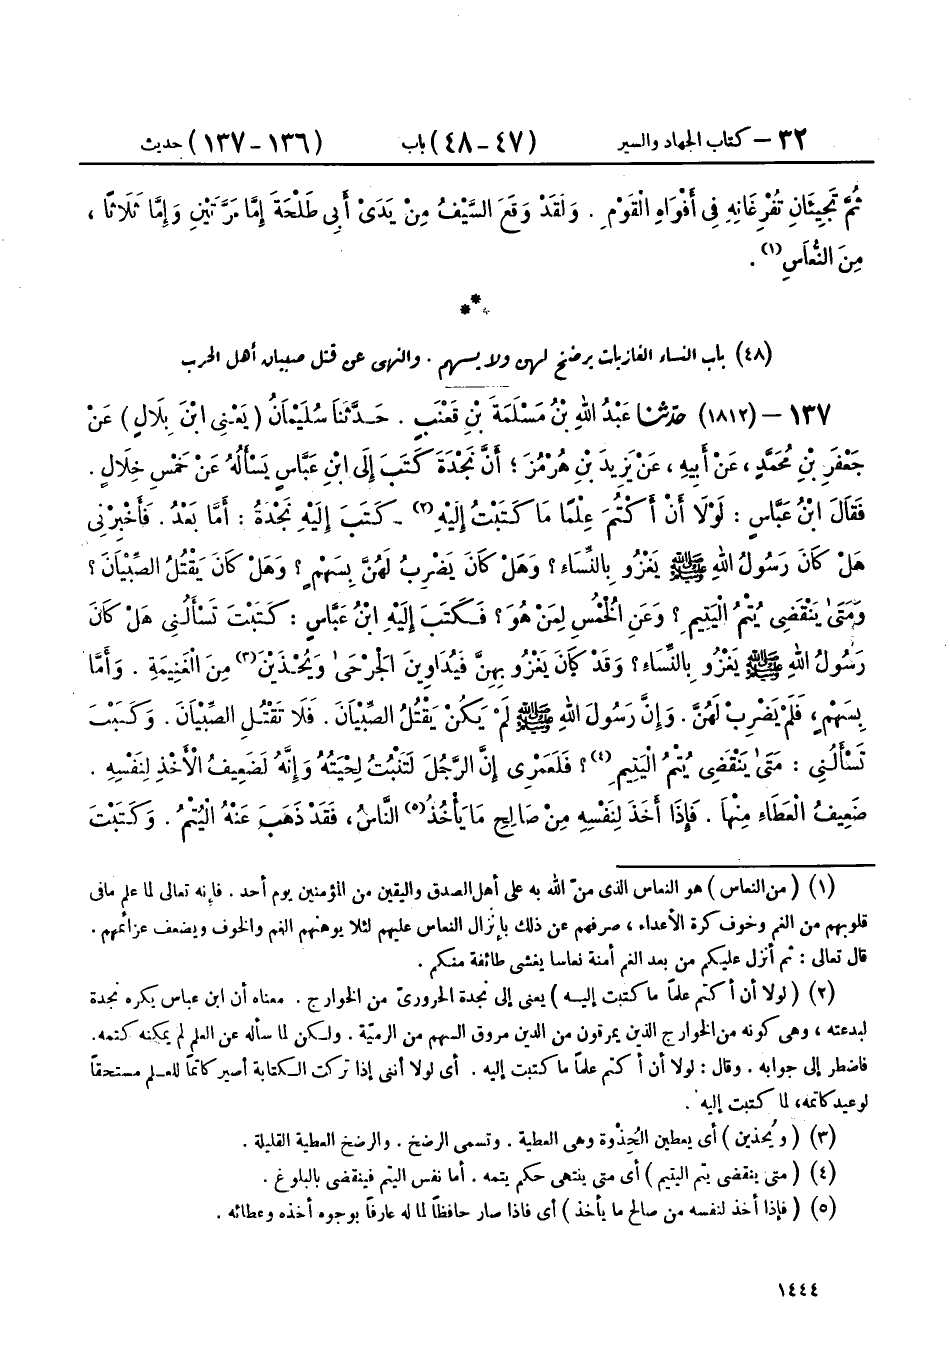 ٣٢ – كتاب الجهاد والسير (٤٧-٤٨) باب (١٣٦-١٣٧) حديث
ثُمَّ تَجِيئَانِ تُفْرِغَانِهِ فِى أَفْوَاهِ الْقَوْمِ . وَلَقَدْ وَقَعَ السَّيْفُ مِنْ يَدَىْ أَبِى طَلْحَةَ إِمَّا مَرَّتَيْنِ وَإِمَّا ثَلَاثًا ،
مِنَ النُّعَاسِ(١) .
***
(٤٨) باب النساء الغازيات يرضخ لهن ولا يسهم . والنهى عن قتل صبيان أهل الحرب
١٣٧ – (١٨١٢) حَدَّثَنَا عَبْدُ اللهِ بْنُ مَسْلَمَةَ بْنِ قَعْنَبٍ . حَدَّثَنَا سُلَيْمَانُ ( يَعْنِى ابْنَ بِلَالٍ ) عَنْ
جَعْفَرِ بْنِ مُحَمَّدٍ ، عَنْ أَبِيهِ ، عَنْ يَزِيدَ بْنِ هُرْمُزَ ؛ أَنَّ نَجْدَةَ كَتَبَ إِلَى ابْنِ عَبَّاسٍ يَسْأَلُهُ عَنْ خَمْسِ خِلَالٍ .
فَقَالَ ابْنُ عَبَّاسٍ : لَوْلَا أَنْ أَكْتُمَ عِلْمًا مَا كَتَبْتُ إِلَيْهِ(٢) . كَتَبَ إِلَيْهِ نَجْدَةُ : أَمَّا بَعْدُ . فَأَخْبِرْنِى
هَلْ كَانَ رَسُولُ اللهِ ﷺ يَغْزُو بِالنِّسَاءِ ؟ وَهَلْ كَانَ يَضْرِبُ لَهُنَّ بِسَهْمٍ ؟ وَهَلْ كَانَ يَقْتُلُ الصِّبْيَانَ ؟
وَمَتَىٰ يَنْقَضِى يُتْمُ الْيَتِيمِ ؟ وَعَنِ الْخُمْسِ لِمَنْ هُوَ ؟ فَكَتَبَ إِلَيْهِ ابْنُ عَبَّاسٍ : كَتَبْتَ تَسْأَلُنِى هَلْ كَانَ
رَسُولُ اللهِ ﷺ يَغْزُو بِالنِّسَاءِ ؟ وَقَدْ كَانَ يَغْزُو بِهِنَّ فَيُدَاوِينَ الْجَرْحَىٰ وَيُحْذَيْنَ(٣) مِنَ الْغَنِيمَةِ . وَأَمَّا
بِسَهْمٍ ، فَلَمْ يَضْرِبْ لَهُنَّ . وَإِنَّ رَسُولَ اللهِ ﷺ لَمْ يَكُنْ يَقْتُلُ الصِّبْيَانَ . فَلَا تَقْتُلِ الصِّبْيَانَ . وَكَتَبْتَ
تَسْأَلُنِى : مَتَىٰ يَنْقَضِى يُتْمُ الْيَتِيمِ(٤) ؟ فَلَعَمْرِى إِنَّ الرَّجُلَ لَتَنْبُتُ لِحْيَتُهُ وَإِنَّهُ لَضَعِيفُ الْأَخْذِ لِنَفْسِهِ .
ضَعِيفُ الْعَطَاءِ مِنْهَا . فَإِذَا أَخَذَ لِنَفْسِهِ مِنْ صَالِحِ مَا يَأْخُذُ(٥) النَّاسُ ، فَقَدْ ذَهَبَ عَنْهُ الْيُتْمُ . وَكَتَبْتَ
(١) ( من النعاس ) هو النعاس الذى منّ الله به على أهل الصدق واليقين من المؤمنين يوم أحد . فإنه تعالى لما علم ما فى
قلوبهم من الغم وخوف كرة الأعداء ، صرفهم عن ذلك بإنزال النعاس عليهم لئلا يوهنهم الهم والخوف ويضعف عزائمهم .
قال تعالى : ثم أنزل عليكم من بعد الغم أمنة نعاسا يغشى طائفة منكم .
(٢) ( لولا أن أكتم علماً ما كتبت إليه ) يعنى إلى نجدة الحرورىّ من الخوارج . معناه أن ابن عباس يكره نجدة
لبدعته ، وهى كونه من الخوارج الذين يمرقون من الدين مروق السهم من الرمية . ولكن لما سأله عن العلم لم يمكنه كتمه .
فاضطر إلى جوابه . وقال : لولا أن أكتم علماً ما كتبت إليه . أى لولا أننى إذا تركت الكتابة أصير كاتماً للعلم مستحقاً
لوعيد كاتمه ، لما كتبت إليه .
(٣) ( ويُحذين ) أى يعطين الحِذْوة وهى العطية . وتسمى الرضخ . والرضخ العطية القليلة .
(٤) ( متى ينقضى يتم اليتيم ) أى متى ينتهى حكم يتمه . أما نفس اليتم فينقضى بالبلوغ .
(٥) ( فإذا أخذ لنفسه من صالح ما يأخذ ) أى فاذا صار حافظاً لما له عارفاً بوجوه أخذه وعطائه .
١٤٤٤